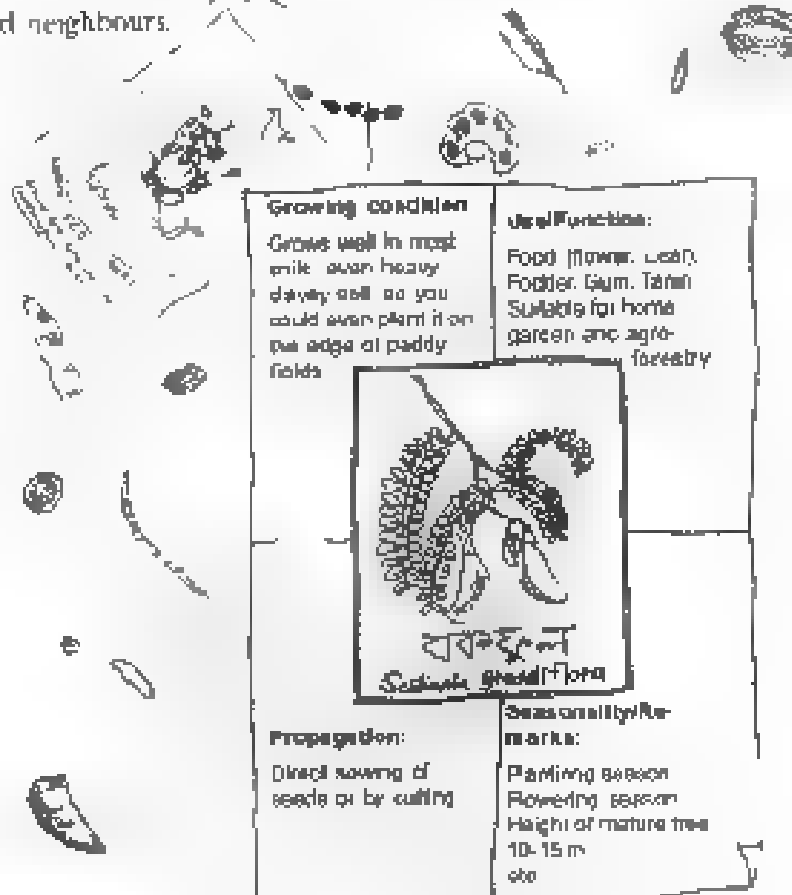 d neighbours.
Growing condition
Grows well in most
soils even heavy
clayey soil so you
could even plant it on
the edge of paddy
fields
Use/Function:
Food (flower, Leaf),
Fodder, Gum, Tanin
Suitable for home
garden and agro-
forestry
Sesbania grandiflora
Propagation:
Direct sowing of
seeds or by cutting
Seasonality/Re-
marks:
Planting season
Flowering season
Height of mature tree
10-15 m
etc